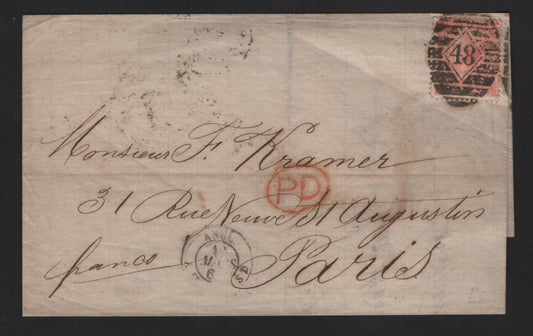 48
Monsieur F. Kramer
PD
31 Rue Neuve St Augustin
ANGL
francs
Paris